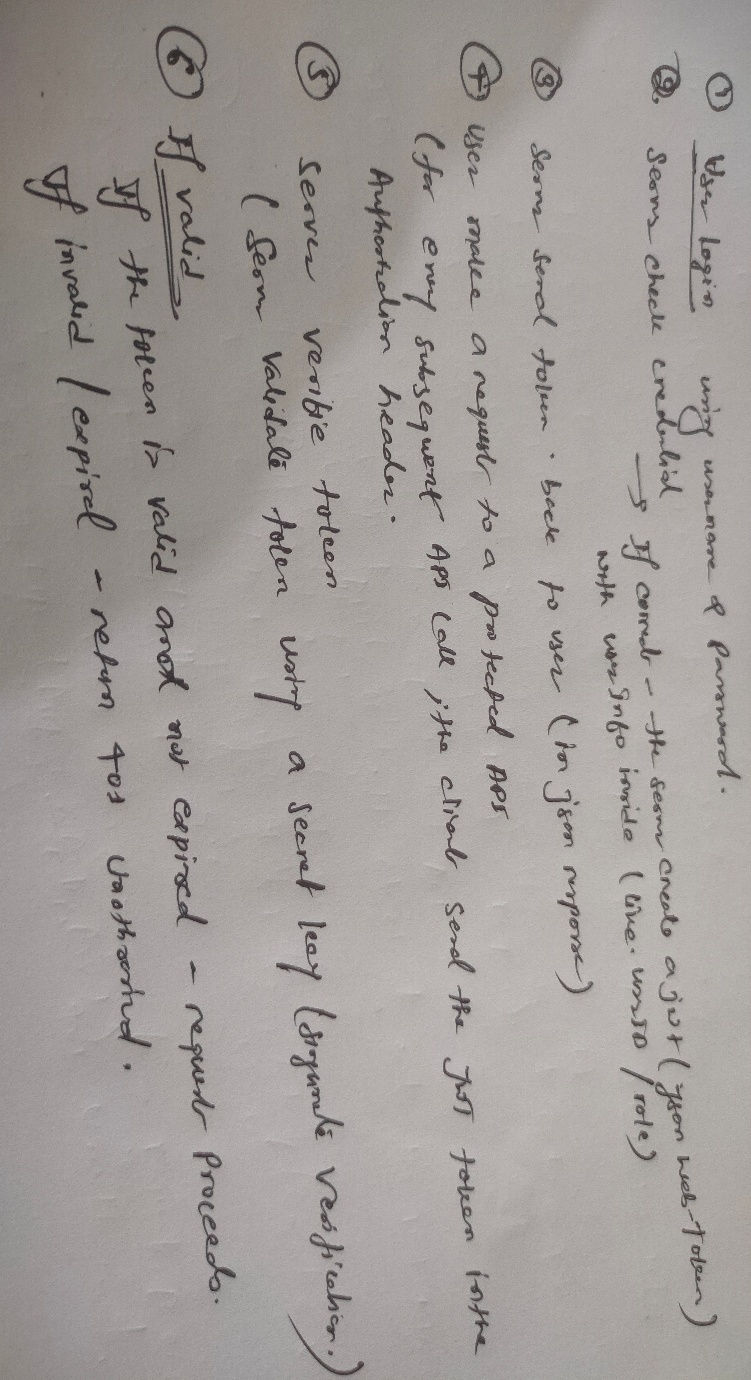 ① User Login using username & password.
② Server check credential → If correct - the server create a jwt (json web-token)
with user info inside (like userID / role)
③ Server send token back to user (in json response)
④ User make a request to a protected API
(for every subsequent API call, the client send the JWT token in the
Authorization header.
⑤ Server verifie token
(Server validate token using a secret key (signature verification.)
⑥ If valid
If the token is valid and not expired - request proceeds.
If invalid / expired - return 401 Unauthorized.